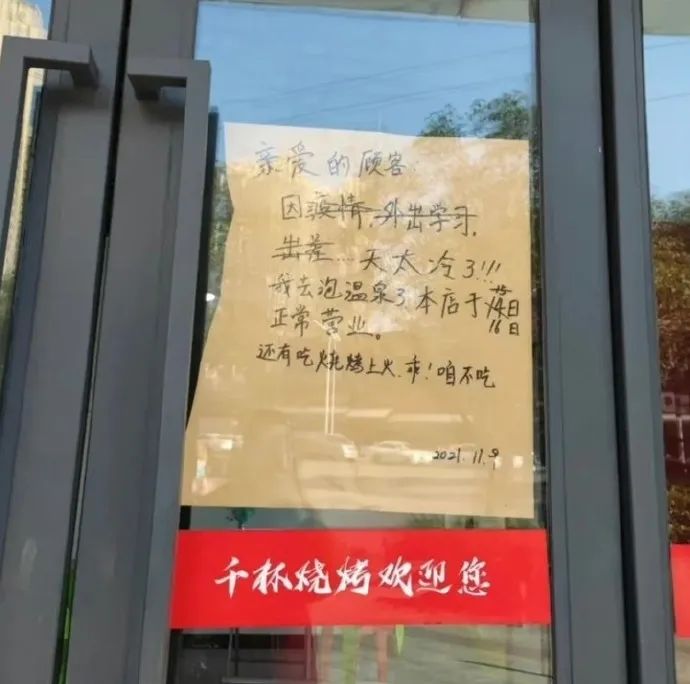 亲爱的顾客:
因疫情、外出学习,
出差...天太冷了!!!
我去泡温泉了本店于14日
15
16日
正常营业。
还有吃烧烤上火.乖!咱不吃
2021.11.9
千杯烧烤欢迎您